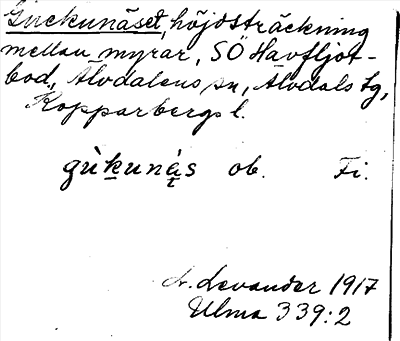 Guckunäset, höjdsträckning
mellan myrar, SÖ Havfljot-
bod, Älvdalens sn, Älvdals tg,
Kopparbergs l.
gùkunä̀s ob. Fi.
L. Levander 1917
Ulma 339:2